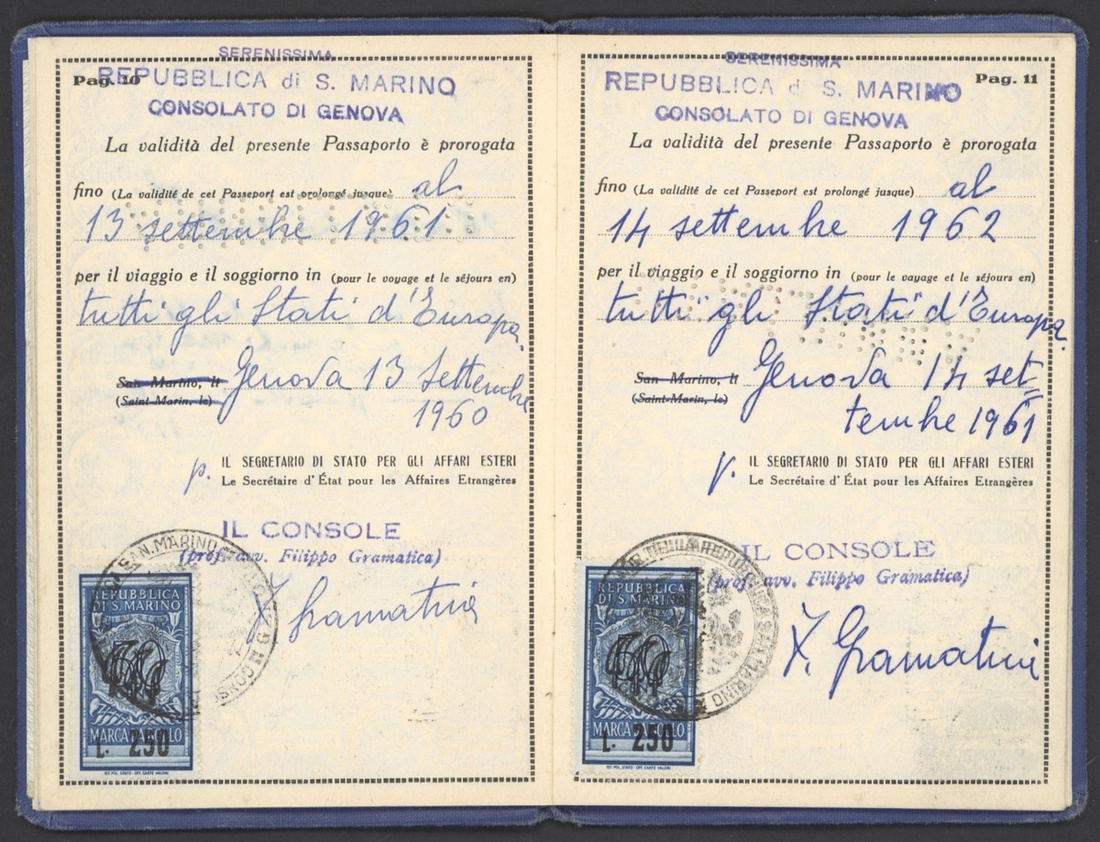 SERENISSIMA
Pag. 10
REPUBBLICA di S. MARINO
CONSOLATO DI GENOVA
La validità del presente Passaporto è prorogata
fino (La validité de cet Passeport est prolongé jusque) al
13 settembre 1961
per il viaggio e il soggiorno in (pour le voyage et le séjours en)
tutti gli Stati d'Europa.
San Marino, lì Genova 13 Settembre
(Saint-Marin, le)
1960
p. IL SEGRETARIO DI STATO PER GLI AFFARI ESTERI
Le Secrétaire d'État pour les Affaires Etrangères
IL CONSOLE
(prof. avv. Filippo Gramatica)
F. Gramatica
SAN MARINO
REPUBBLICA
DI S. MARINO
MARCA BOLLO
L. 250
IST. POL. STATO - OFF. CARTE VALORI
SERENISSIMA
REPUBBLICA di S. MARINO
Pag. 11
CONSOLATO DI GENOVA
La validità del presente Passaporto è prorogata
fino (La validité de cet Passeport est prolongé jusque) al
14 settembre 1962
per il viaggio e il soggiorno in (pour le voyage et le séjours en)
tutti gli Stati d'Europa.
San Marino, lì Genova 14 set-
(Saint-Marin, le)
tembre 1961
p. IL SEGRETARIO DI STATO PER GLI AFFARI ESTERI
Le Secrétaire d'État pour les Affaires Etrangères
IL CONSOLE
(prof. avv. Filippo Gramatica)
F. Gramatica
REPUBBLICA
DI S. MARINO
MARCA BOLLO
L. 250
IST. POL. STATO - OFF. CARTE VALORI